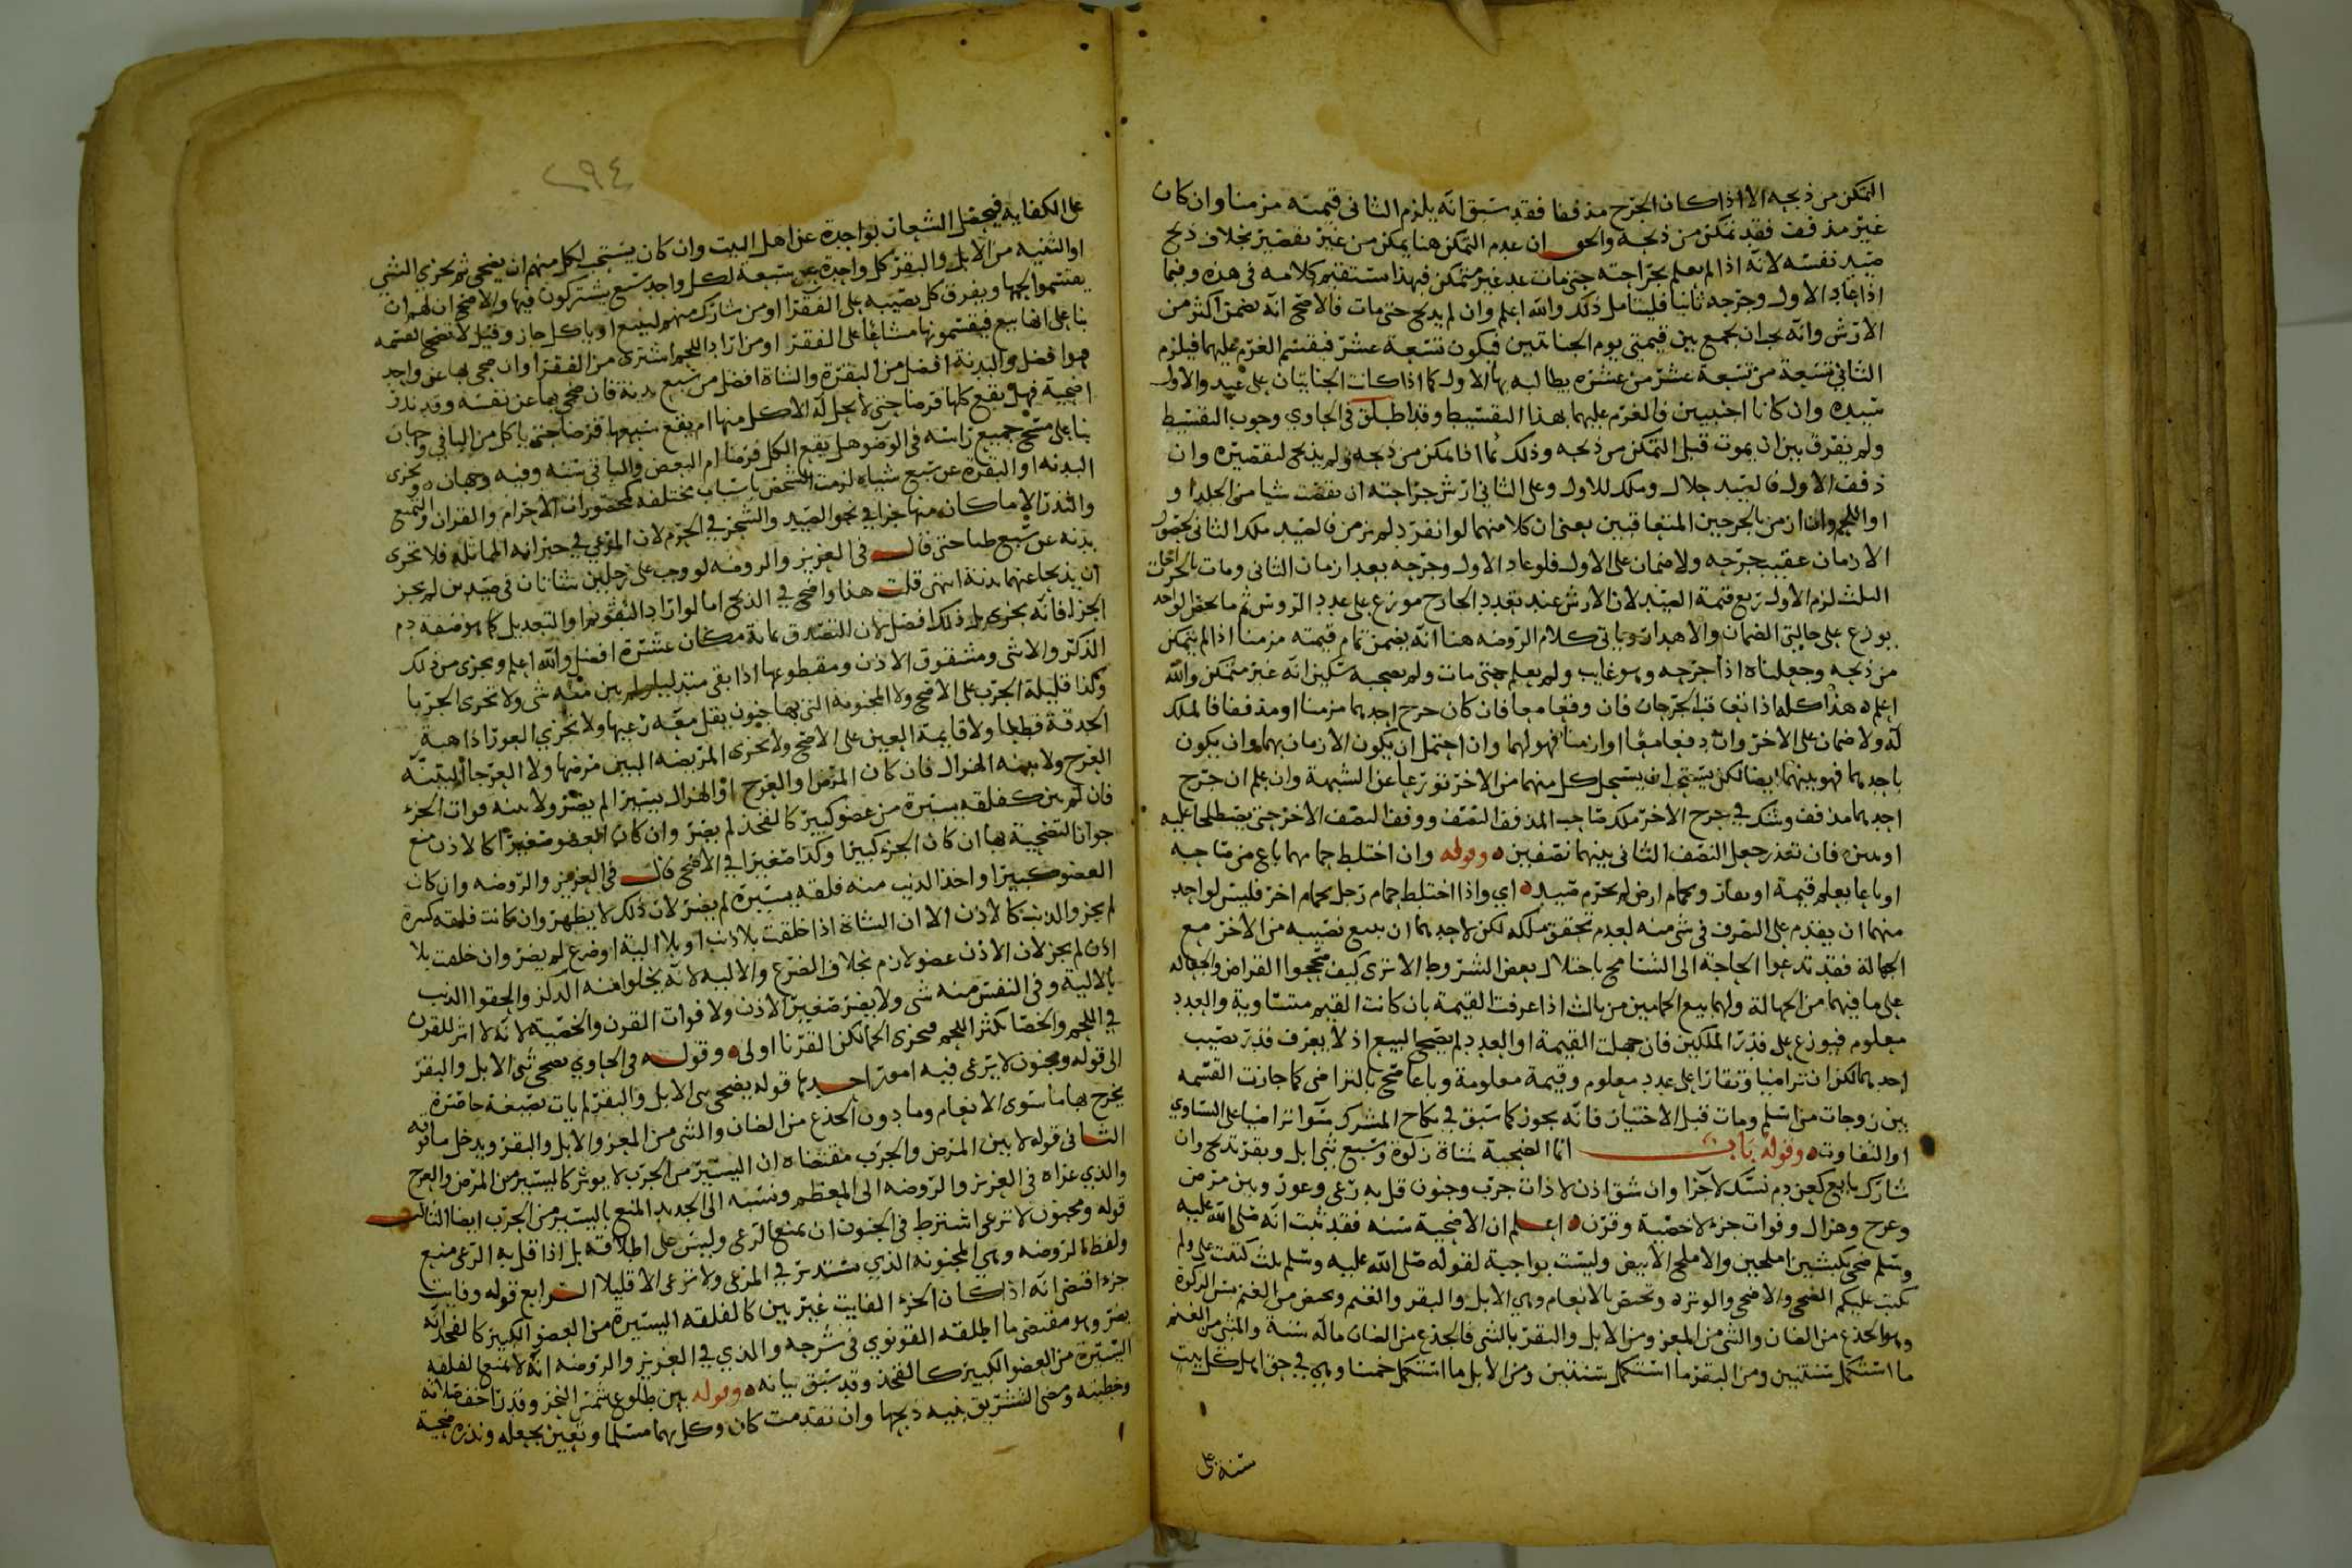 التمكن من ذبحه الا اذا كان الجرح مذففا فقد سبق انه يلزم الثاني قيمته مزمنا وان كان
غير مذفف فقد تمكن من ذبحه والحق ان عدم التمكن هنا يمكن من غير تقصير بخلاف ذبح
صيد نفسه لانه اذا لم يعلم بجراحته حتى مات عد غير متمكن فبهذا يستقيم كلامه في هذه وفيما
اذا عاد الاول وجرحه ثانيا فليتامل ذلك والله اعلم وان لم يذبح حتى مات فالاصح انه يضمن اكثر من
الارش وانه يجب ان يجمع بين قيمتي يوم الجنايتين فيكون تسعة عشر فيقسم الغرم عليهما فيلزم
الثاني تسعة من تسعة عشر من عشره يطالبه بها الاول كما اذا كانت الجنايتان على عبد والاول
سيده وان كانا اجنبيين فالغرم عليهما بهذا التقسيط وقد اطلق في الحاوي وجوب التقسيط
ولم يفرق بين ان يموت قبل التمكن من ذبحه وذلك اما اذا تمكن من ذبحه ولم يذبح لتقصيره وان
ذفف الاول فالصيد حلال وملك للاول وعلى الثاني ارش جراحته ان نقصت شيا من الجلد او
او اللحم وان ازمن بالجرحين المتعاقبين بمعنى ان كلا منهما لو انفرد لم يزمن فالصيد ملك الثاني لحصول
الازمان عقيب جرحه ولا ضمان على الاول فلو عاد الاول وجرحه بعد ازمان الثاني ومات بالجراحات
الثلث لزم الاول ربع قيمة الصيد لان الارش عند تعدد الجارح موزع على عدد الروس ثم ما يخص الواحد
يوزع على حالتي الضمان والاهدار وياتي كلام الروضه هنا انه يضمن تمام قيمته مزمنا اذا لم يتمكن
من ذبحه وجعلناه اذا جرحه وهو غايب ولم يعلم حتى مات ولم يصحبه سكين انه غير متمكن والله
اعلم هذا كله اذا تعاقب الجرحان فان وقعا معا فان كان جرح احدهما مزمنا او مذففا فالملك
له ولا ضمان على الاخر وان دففا معا او ازمنا فهو لهما وان احتمل ان يكون الازمان بهما وان يكون
باحدهما فهو بينهما ايضا لكن يستحب ان يستحل كل منهما من الاخر تورعا عن الشبهة وان علم ان جرح
احدهما مذفف وشك في جرح الاخر ملك صاحب المذفف النصف ووقف النصف الاخر حتى يصطلحا عليه
او يتبين فان تعذر جعل النصف الثاني بينهما نصفين وقوله وان اختلط حمامهما باع من صاحبه
او باعا بعلم قيمة او تقار وحمام ارض لم يحرم صيد اي واذا اختلط حمام رجل بحمام اخر فليس لواحد
منهما ان يقدم على التصرف في شي منه لعدم تحقق ملكه لكن لاحدهما ان يبيع نصيبه من الاخر مع
الجهالة فقد تدعوا الحاجة الى التسامح باختلال بعض الشروط الا ترى كيف صححوا القراض والجعاله
على ما فيهما من الجهالة ولهما بيع الحمامين من ثالث اذا عرفت القيمة بان كانت القيم متساوية والعدد
معلوم فيوزع على قدر الملكين فان جهلت القيمة او العدد لم يصح البيع اذ لا يعرف قدر نصيب
احدهما لكن ان تراضيا وتقارا على عدد معلوم وقيمة معلومة وباعا صح بالتراضي كما جازت القسمه
بين زوجات من اسلم ومات قبل الاختيار فانه يجوز كما سبق في نكاح المشرك سوا تراضيا على التساوي
او التفاوت وقوله باب انما الضحية شاة زكوة وسبع ثني ابل وبقر تذبح وان
شارك بايع كعن دم نسك لاجزا وان شق اذن لا ذات جرب وجنون قل به رعي وعور وبين مرض
وعرج وهزال وفوات جزء لا خصية وقرن اعلم ان الاضحية سنه فقد ثبت انه صلى الله عليه
وسلم ضحى بكبشين املحين والاملح الابيض وليست بواجبة لقوله صلى الله عليه وسلم ثلث كتبت علي ولم
تكتب عليكم الضحى والاضحى والوتر وتختص بالانعام وهي الابل والبقر والغنم ويختص من الغنم بسن الزكوة
وهو الجذع من الضان والثني من المعز ومن الابل والبقر بالثني فالجذع من الضان ما له سنة والثني من الغنم
ما استكمل سنتين ومن البقر ما استكمل سنتين ومن الابل ما استكمل خمسا وهي في حق اهل كل بيت
سنة على
٢٩٤
على الكفايه فيحصل الشعار بواحدة عن اهل البيت وان كان يستحب لكل منهم ان يضحي ثم يجزي الثني
او الثنيه من الابل والبقر كل واحدة عن سبعة لكل واحد سبع يشتركون فيها والاصح ان لهم ان
يقتسموا لحمها ويفرق كل نصيبه على الفقرا او من شارك منهم لبيع او ياكل جاز وقيل لا تصح القسمه
بنا على انها بيع فيقسمونها مشاعا على الفقرا او من اراد اللحم اشترى من الفقرا وان ضحى بها عن واحد
فهو افضل والبدنة افضل من البقرة والشاة افضل من سبع بدنة فان ضحى بها عن نفسه وقد نذر
اضحية فهل يقع كلها فرضا حتى لا يحل له الاكل منها ام يقع سبعها فرضا حتى ياكل من الباقي وجهان
بنا على مسح جميع راسه في الوضو هل يقع الكل فرضا ام البعض والباقي سنه وفيه وجهان وتجزى
البدنه او البقرة عن سبع شياه لزمت الشخص باسباب مختلفه كمحضورات الاحرام والقران والتمتع
والنذر الا ما كان منها جزا في نحو الصيد والشجر في الحرم لان المرعي في جبرانه المماثله فلا تجزى
بدنه عن سبع ظبا حتى قال في العزيز والروضه لو وجب على رجلين شاتان في صيدين لم يجز
ان يذبحا عنهما بدنة انتهى قلت هذا واضح في الذبح اما لو اراد التقويم او التعديل كما يوصفه دم
الجزا فانه يجزي بل ذلك افضل لان التصدق بماية مكان عشرة افضل والله اعلم ويجزى من ذلك
الذكر والانثى ومشقوق الاذن ومقطوعها اذا بقي متدليا ولم يبن منه شي ولا تجزى الجربا
وكذا قليلة الجرب على الاصح ولا المجنونة التي بها جنون يقل معه رعيها ولا تجزي العورا ذاهبة
الحدقة قطعا ولا قايمة العين على الاصح ولا تجزى المريضه البين مرضها ولا العرجا البينة
العرج ولا بينه الهزال فان كان المرض او العرج او الهزال يسيرا لم يضر ولا بينه فوات الجزء
فان لم يبن كفلقه يسيرة من عضو كبير كالفخذ لم يضر وان كان العضو صغيرا كالاذن منع
جواز التضحية بها ان كان الجزء كبيرا وكذا صغيرا في الاصح قال في العزيز والروضه وان كان
العضو كبيرا او اخذ الذيب منه فلقه يسيرة لم يضر لان ذلك لا يظهر وان كانت فلقه كبيرة
لم يجز والذنب كالاذن الا ان الشاة اذا خلقت بلا ذنب او بلا الية او ضرع لم يضر وان خلقت بلا
اذن لم يجز لان الاذن عضو لازم بخلاف الضرع والالية لانه يخلوا منه الذكر والحقوا الذنب
بالالية وفي النفس منه شي ولا يضر صغير الاذن ولا فوات القرن والخصية لانه لا اثر للقرن
في اللحم والخصا يكثر اللحم فتجزى الجما لكن القرنا اولى وقوله في الحاوي تضحي ثني الابل والبقر
الى قوله ومجنون لا يرعى فيه امور احدها قوله يضحي ثني الابل والبقر لم يات بصيغة حاصرة
يخرج بها ما سوى الانعام وما دون الجذع من الضان والثني من المعز والابل والبقر ويدخل ما فوقه
الثاني قوله لا بين المرض والجرب مقتضاه ان اليسير من الجرب لا يوثر كاليسير من المرض والعرج
والذي عزاه في العزيز والروضه الى المعظم ونسبه الى الجديد المنع باليسير من الجرب ايضا الثالث
قوله ومجنون لا ترعى اشترط في الجنون ان يمنع الرعي وليس على اطلاقه بل اذا قل به الرعي منع
ولفظ الروضه وهي المجنونه الذي تستدير في المرعى ولا ترعى الا قليلا الرابع قوله وفايت
جزء اقتضى انه اذا كان الجزء الفايت غير بين كالفلقه اليسيرة من العضو الكبير كالفخذ انه
يضر وهو مقتضى ما اطلقه القونوي في شرحه والذي في العزيز والروضه انه لا يمنع الفلقه
اليسيرة من العضو الكبير كالفخذ وقد سبق بيانه وقوله بين طلوع شمس النحر وقدر اخف صلاته
وخطبتيه ومضى التشريق بنيه ذبحها وان تقدمت كان وكل بهما مسلما وتعين بجعله ونذره ضحية